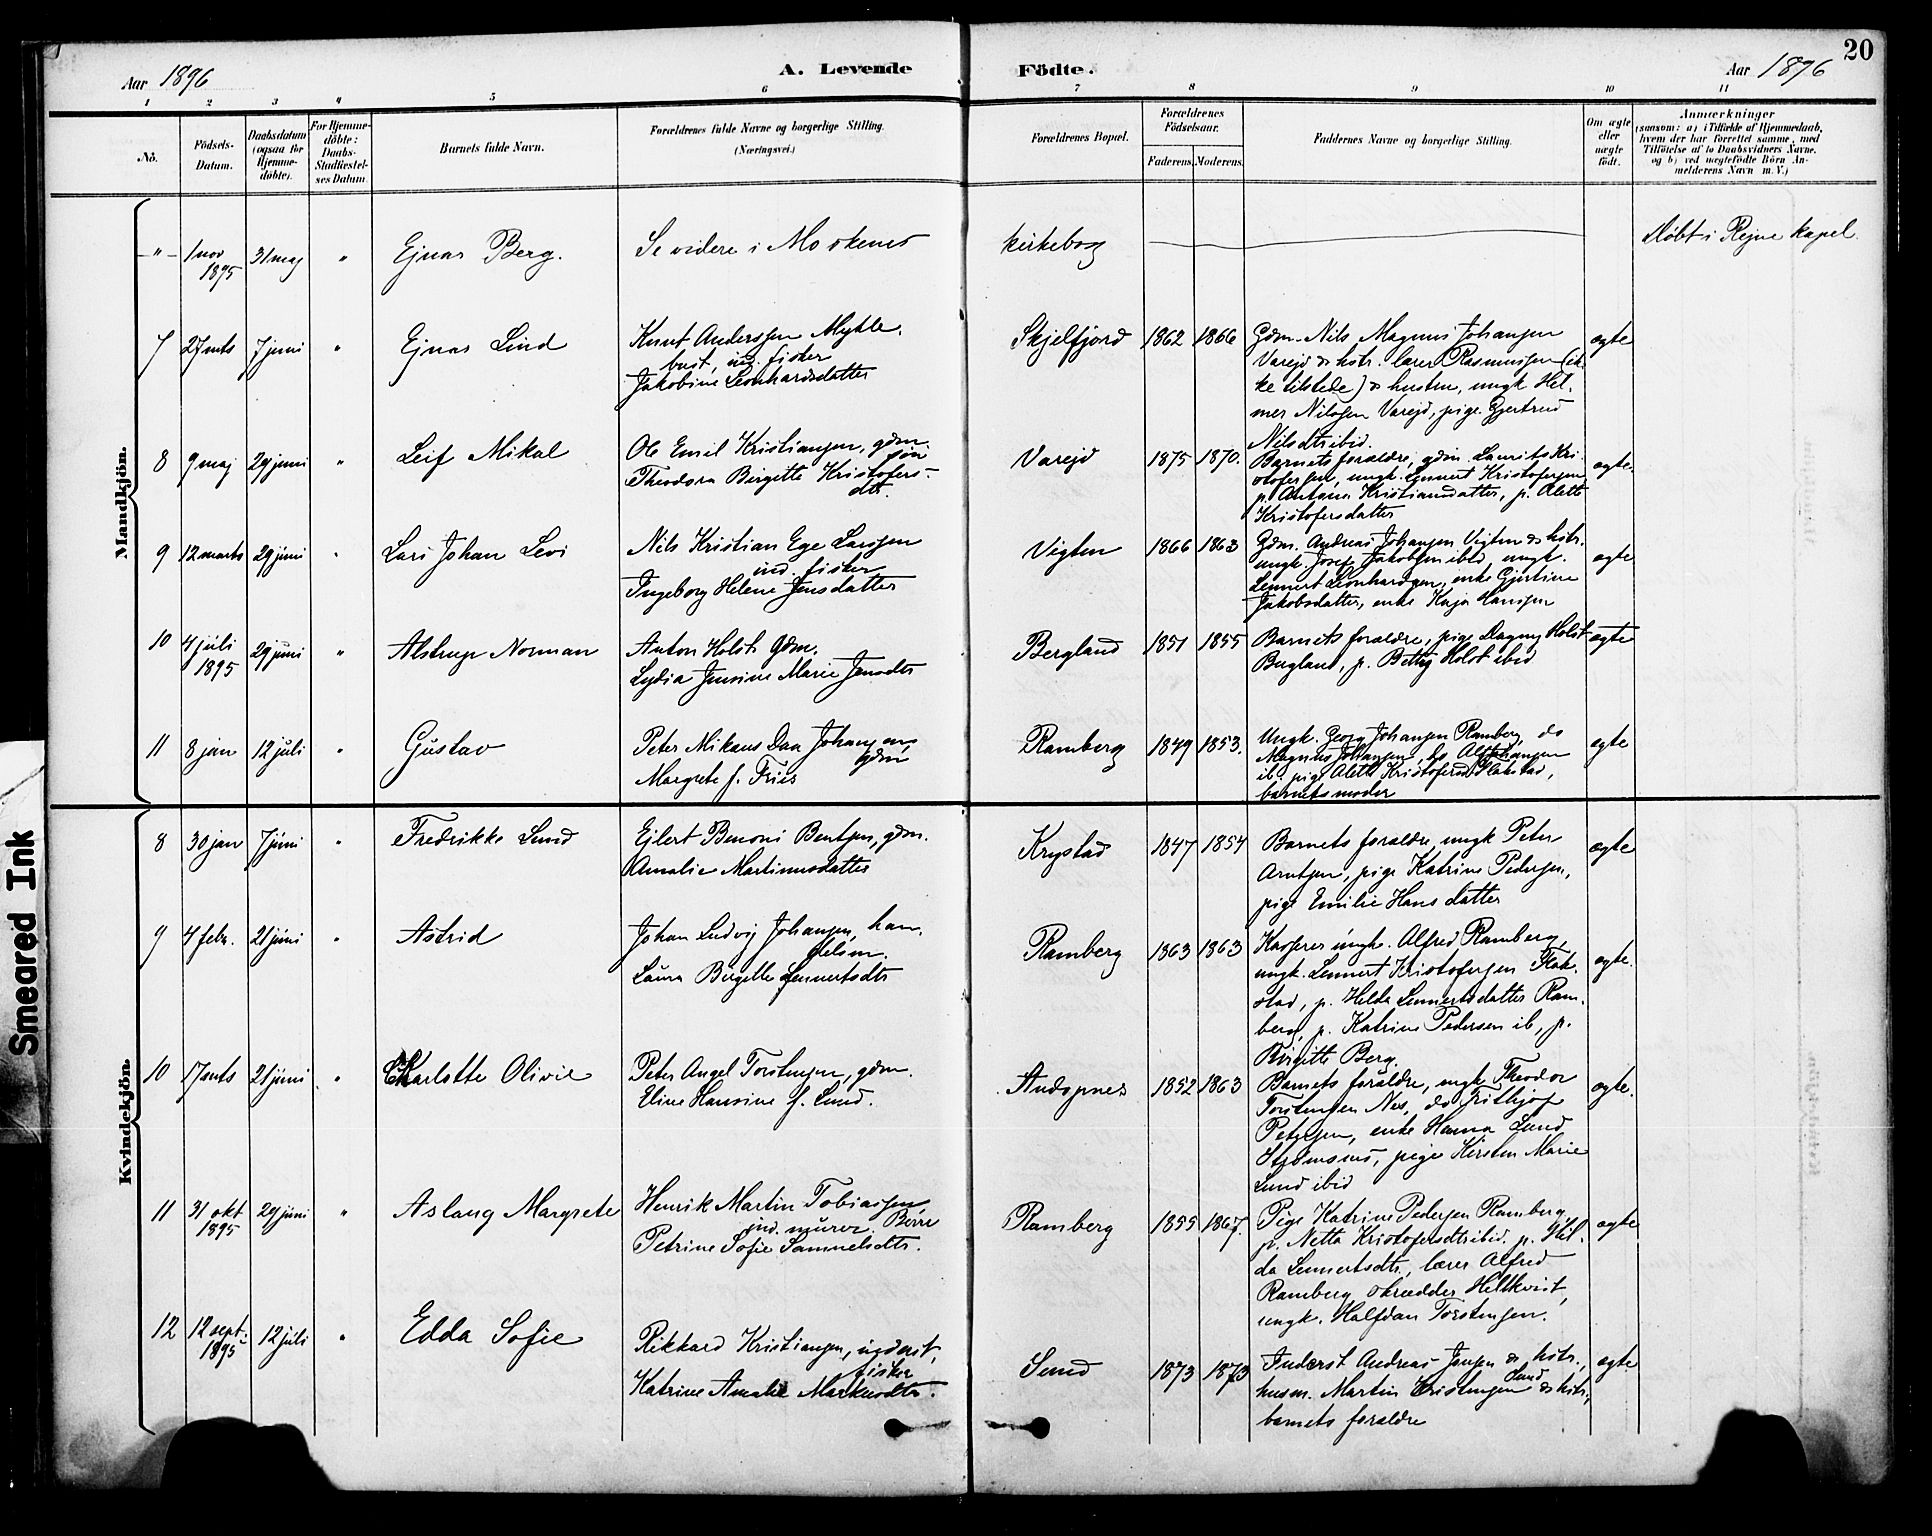 20
Aar 1896 A. Levende Födte. Aar 1896
1 2 3 4 5 6 7 8 9 10 11
No.
Födsels-
Datum.
Daabsdatum
(ogsaa for
Hjemme-
döbte).
For Hjemme-
döbte:
Daabs-
Stadfæstel-
ses Datum.
Barnets fulde Navn.
Forældrenes fulde Navne og borgerlige Stilling.
(Næringsvei.)
Forældrenes Bopæl.
Forældrenes
Födselsaar.
Faderens. Moderens.
Faddernes Navne og borgerlige Stilling.
Om ægte
eller
uægte
födt.
Anmærkninger
(saasom: a) i Tilfælde af Hjemmedaab,
hvem der har forrettet samme, med
Tilföielse af to Daabsvidners Navne,
og b) ved uægtefödte Börn An-
melderens Navn m. V.)
Mandkjön.
-"- 1 nov 1895 31 maj " Ejnar Berg. Se videre i Moskenes kirkebog Döbt i Rejne kapel.
7 27 mts 7 juni " Ejnar Lind
Knut Anderssen Mykle-
bust, ind. fisker
Jakobine Leonhardsdatter
Skjelfjord 1862 1866
Gdm. Nils Magnus Johansen
Varejd & hstr. lærer Rasmussen (ik-
ke tilstede) & hustru, ungk. Hel-
mer Nilssen Varejd, pige Gjertrud
Nilsdtr ibid.
ægte
8 9 maj 29 juni " Leif Mikal
Ole Emil Kristiansen, gdm.
søn
Theodora Birgitte Kristofers-
dtr.
Varejd 1875 1870.
Barnets forældre, gdm. Laurits Kri-
stofersen, ungk. Lennert Kristofersen,
p. Antona Kristiansdatter, p. Alette
Kristofersdatter
ægte
9 12 marts 29 juni " Lars Johan Levi
Nils Kristian Ege Larssen
ind. fisker
Ingeborg Helene Jensdatter
Vigten 1866 1863
Gdm. Andreas Johansen Vigten & hstr.
ungk. Josef Jakobsen ibid, ungk.
Lennert Leonhardsen, enke Gjertine
Jakobsdatter, enke Kaja Hanssen
ægte
10 4 juli 1895 29 juni " Alstrup Norman
Anton Holst gdm.
Lydia Jensine Marie Jensdtr
Bergland 1851 1855
Barnets forældre, pige Dagny Holst
Bergland, p. Betty Holst ibid
ægte
11 8 jan 12 juli " Gustav
Peter Mikaus Daa Johansen,
gdm
Margrete f. Friis
Ramberg 1849 1853.
Ungk. Georg Johansen Ramberg, do
Magnus Johansen, do Alf Johansen
ib. pige Alette Kristofersd. Flakstad,
barnets moder
ægte
Kvindekjön.
8 30 jan 7 juni " Fredrikke Lund
Ejlert Benoni Bentsen, gdm.
Amalie Martinusdatter
Krystad 1847 1854
Barnets forældre, ungk Peter
Arntsen, pige Katrine Pedersen,
pige Emilie Hansdatter
ægte
9 4 febr. 21 juni " Astrid
Johan Ludvig Johansen, han-
delsm.
Laura Birgitte Lennertsdtr
Ramberg 1863 1863
Kasserer ungk. Alfred Ramberg,
ungk. Lennert Kristofersen Flak-
stad, p. Helda Lennertsdatter Ram-
berg, p. Katrine Pedersen ib, p.
Birgitte Berg.
ægte.
10 17 mts 21 juni " Charlotte Olivie
Peter Angel Torstensen, gdm.
Eline Hansine f. Lund.
Andopnes 1852 1863
Barnets forældre, ungk Theodor
Torstensen Nes, do Frithjof
Petersen, enke Hanna Lund
pige Kirsten Marie
Lund ibid
ægte.
11 31 okt 1895 29 juni " Aslaug Margrete
Henrik Martin Tobiassen
ind. murer. Børre
Petrine Sofie Samuelsdtr.
Ramberg 1855 1867.
Pige Katrine Pedersen Ramberg,
p. Netta Kristofersdtr ibid. p. Hil-
da Lennertsdtr, lærer Alfred
Ramberg skrædder Heltkvist,
ungk. Halfdan Torstensen.
ægte
12 12 sept. 1895 12 juli " Edda Sofie
Rikkard Kristiansen, inderst,
fisker
Katrine Amalie Markusdtr.
Sund 1873 1873
Inderst Andreas Jensen & hstr.,
husm. Martin Kristensen Sund & hstr.,
barnets forældre
ægte
Smeared Ink